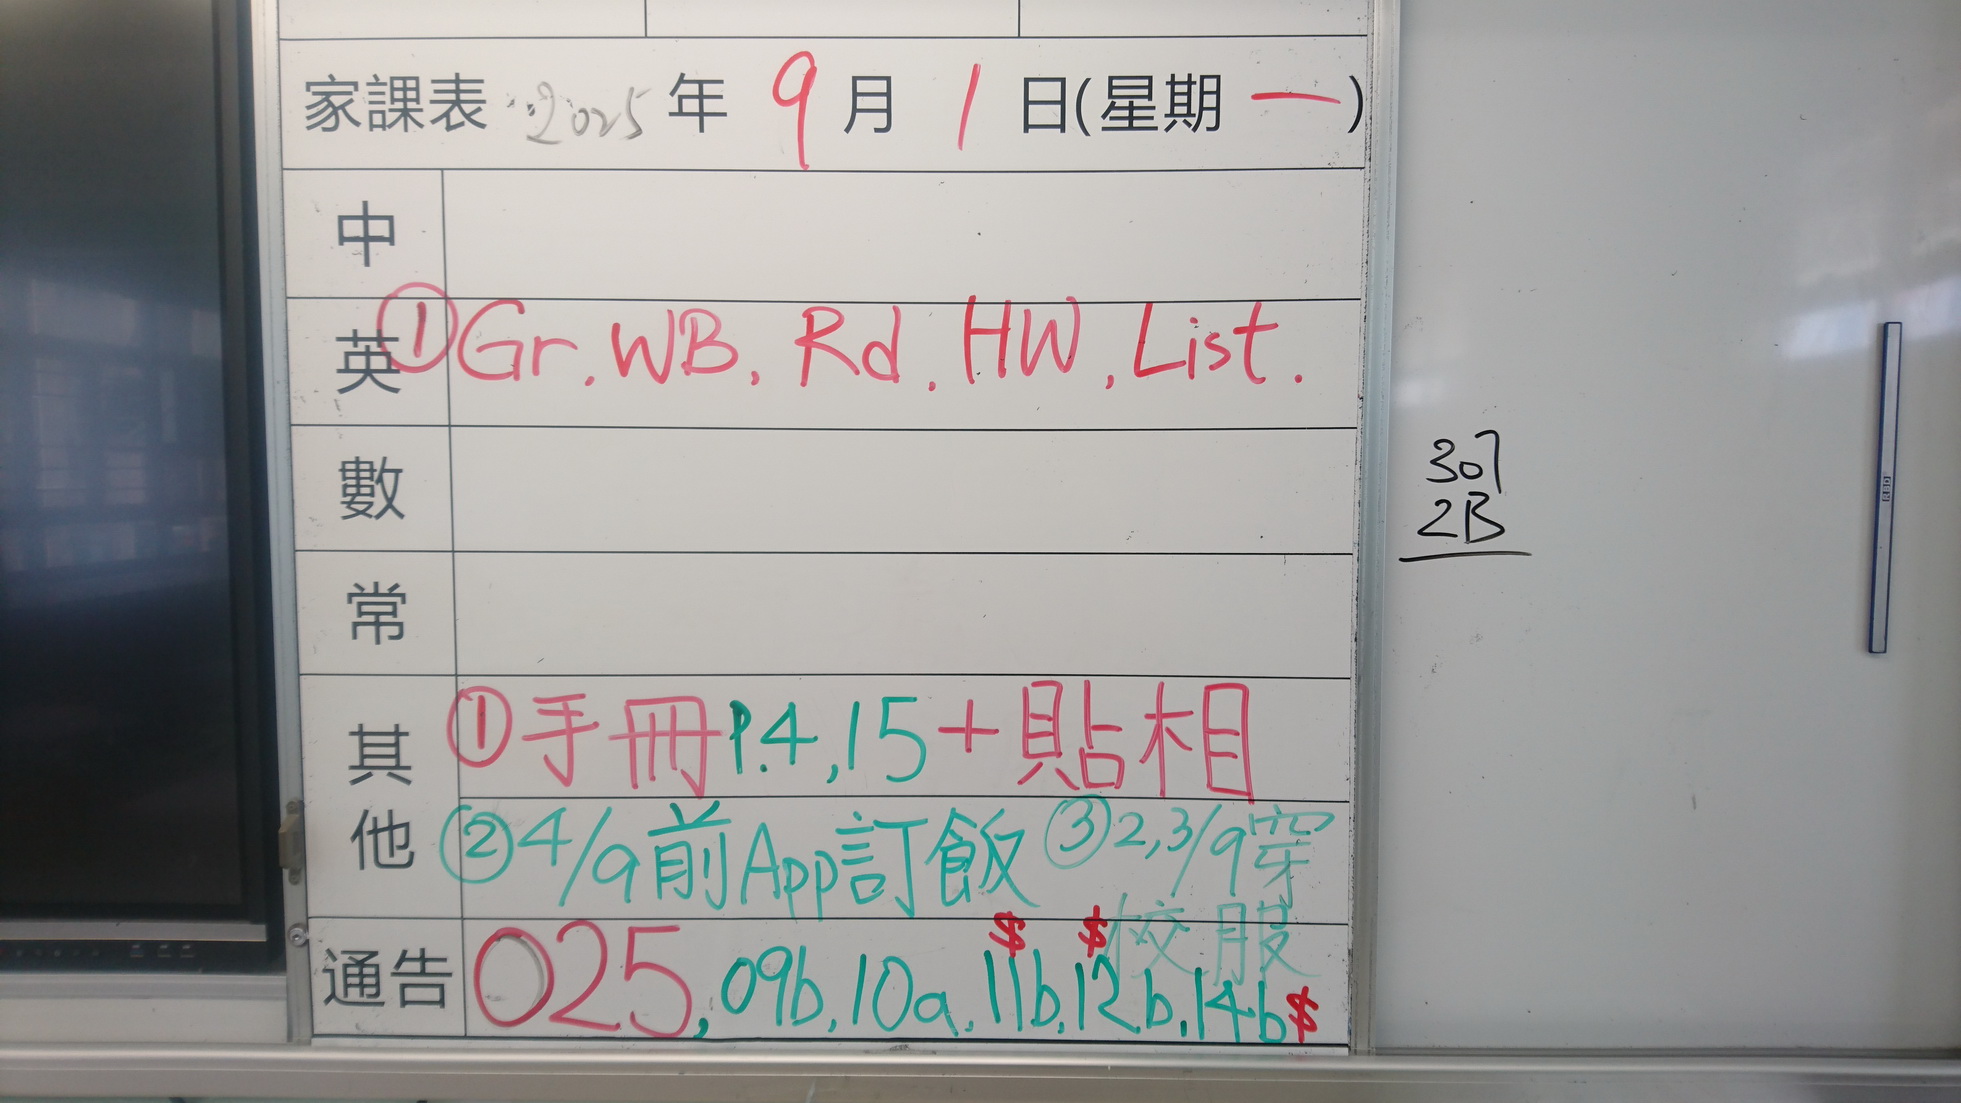 家課表 2025年9月1日(星期一)
中
英 ①Gr. WB, Rd. HW, List.
數
常
其他 ①手冊P.4,15+貼相
②4/9前App訂飯 ③2,3/9穿
校服
通告 025, 09b, 10a, $11b, $12b, 14b$
307
2B